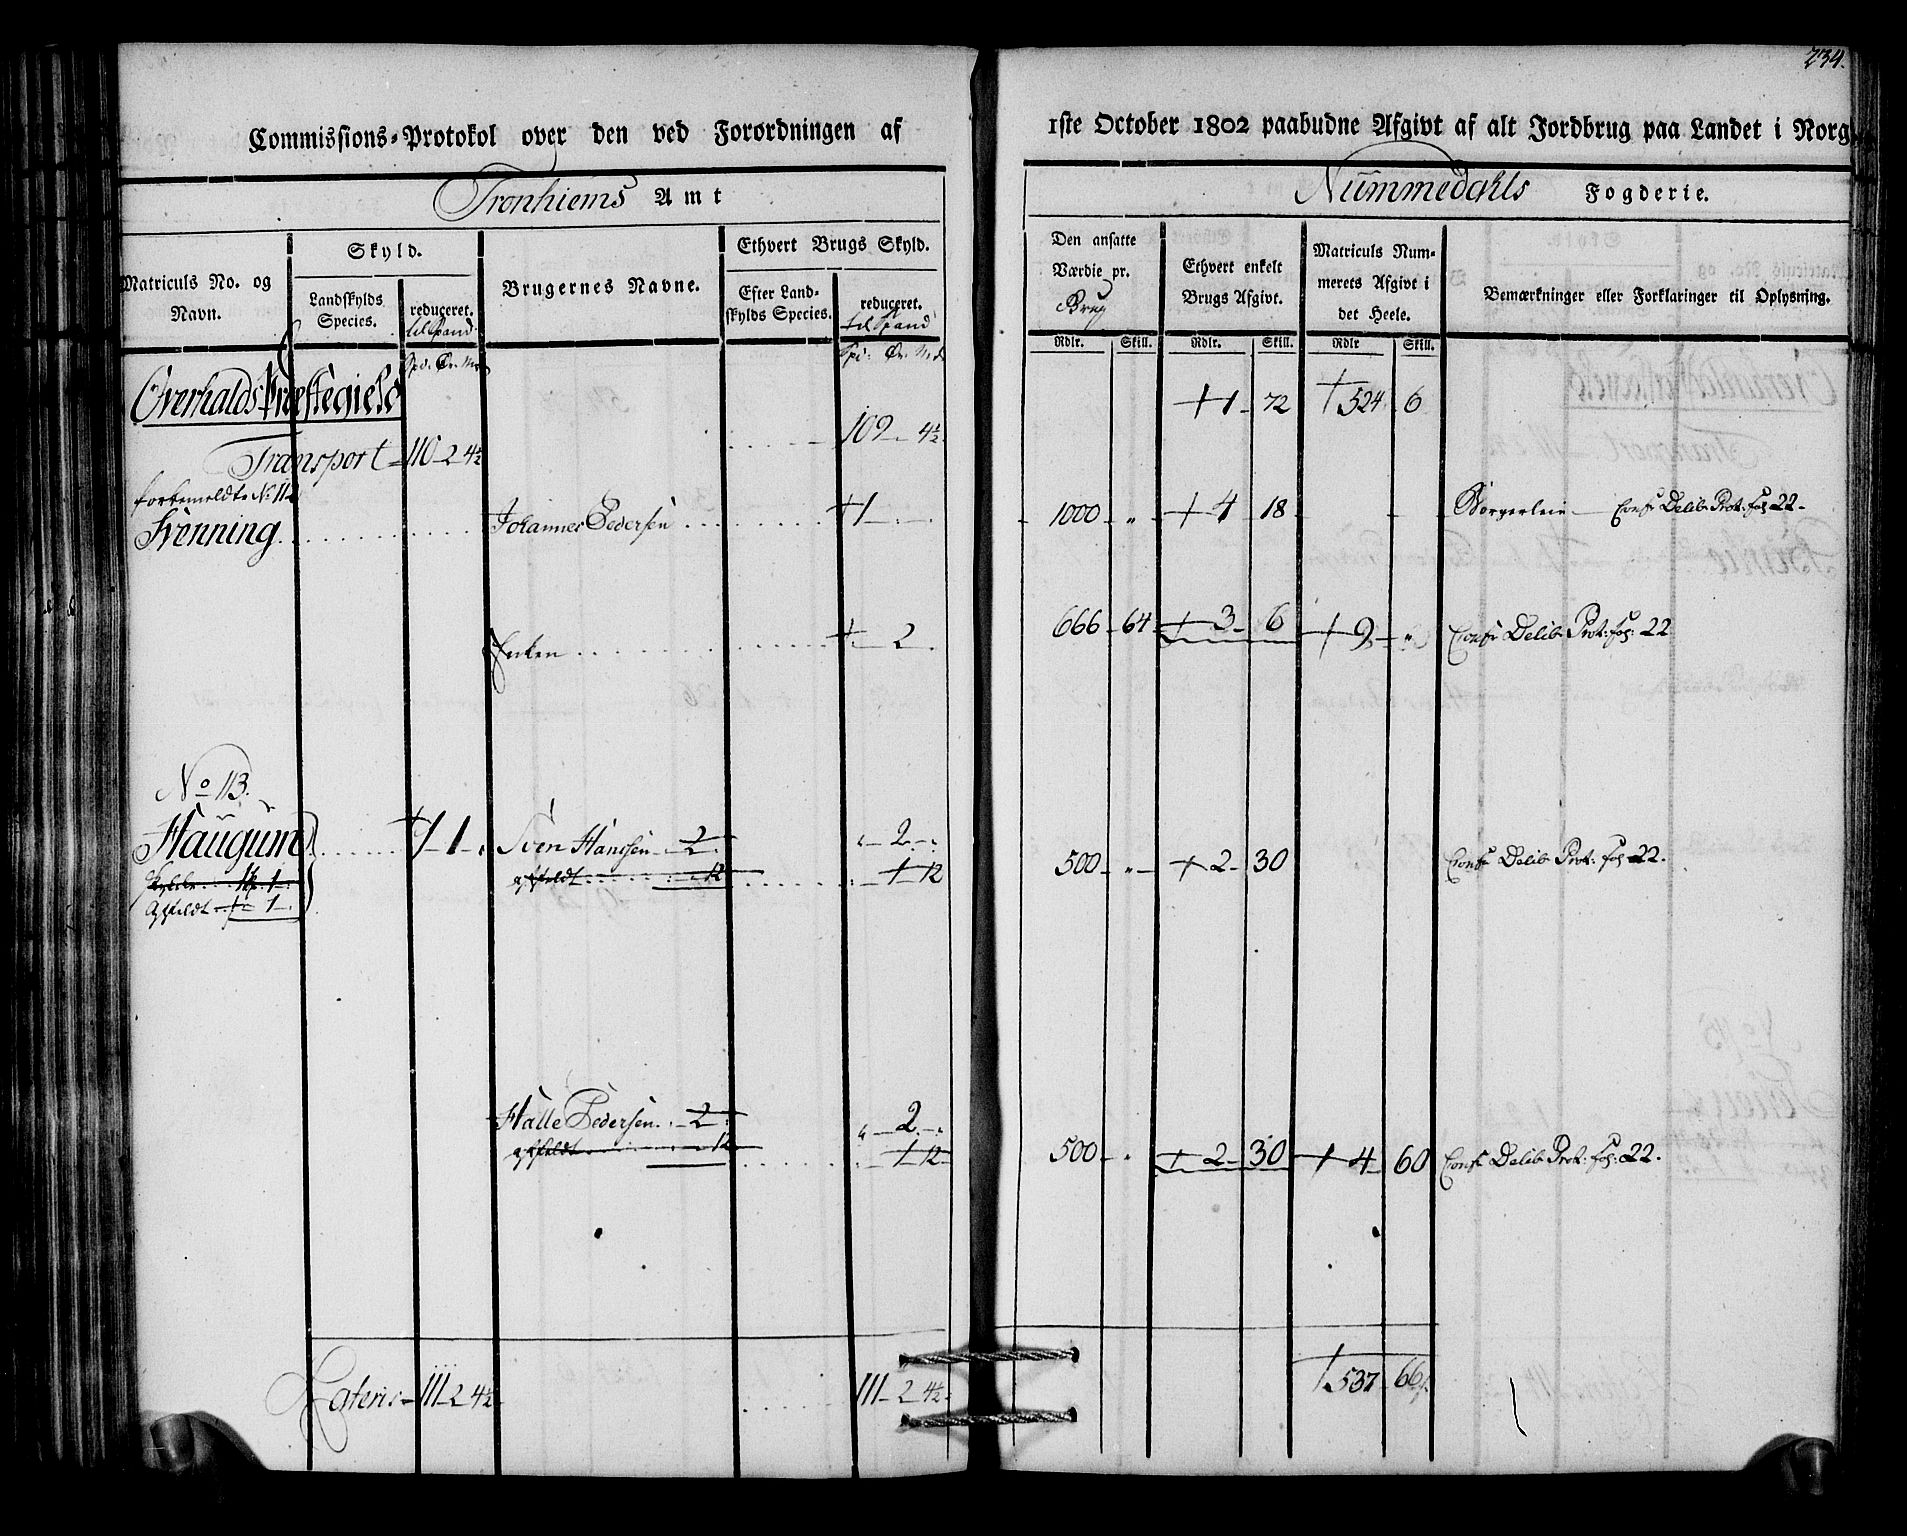 234.
Commissions-Protokol over den ved Forordningen af 1ste October 1802 paabudne Afgivt af alt Jordbrug paa Landet i Norg
Tronhiems Amt
Nummedahls Fogderie.
Matriculs No. og Navn.
Skyld.
Landskylds Species.
reduceret. til Spand
Brugernes Navne.
Ethvert Brugs Skyld.
Efter Landskylds Species.
reduceret. til Spand
Den ansatte Værdie pr. Brug
Ethvert enkelt Brugs Afgivt.
Matriculs Nummerets Afgivt i det Heele.
Bemærkninger eller Forklaringer til Oplysning.
Rdlr. Skill. Rdlr. Skill. Rdlr Skill.
Spd. Ør. Mk
Spd: Ør. Mk
Overhalds Præstegield
+1 - 72 +524 6
Transport - 110 - 2 4½ 109 - . 4½
forbemeldte No. 112
Henning Johannes Pedersen +1 - . - 1000 - " - +4 18 Borgerleie - Conf: Delib: Prot: fol: 22 -
Enken + - 2 . 666 - 64 +3 - 6 +9 - " Conf: Delib: Prot: fol: 22
No 113.
Haugum +1 - 1 - . Sven Hansen - 2 - . " - 2 - " 500 - " - +2 - 30 Conf: Delib: Prot: fol: 22.
Skylder 1 Sp. 1 - . afskeldt 12 - 1 12
Afskeldt 1 - .
Halle Pedersen . - 2 - . " - 2 - . 500 - " +2 - 30 +4 - 60 Conf: Delib: Prot: fol: 22.
afskeldt - 12 - 1 12
Lateris - 111 - 2 4½ - 111 - 2 4½ - +537 - 66